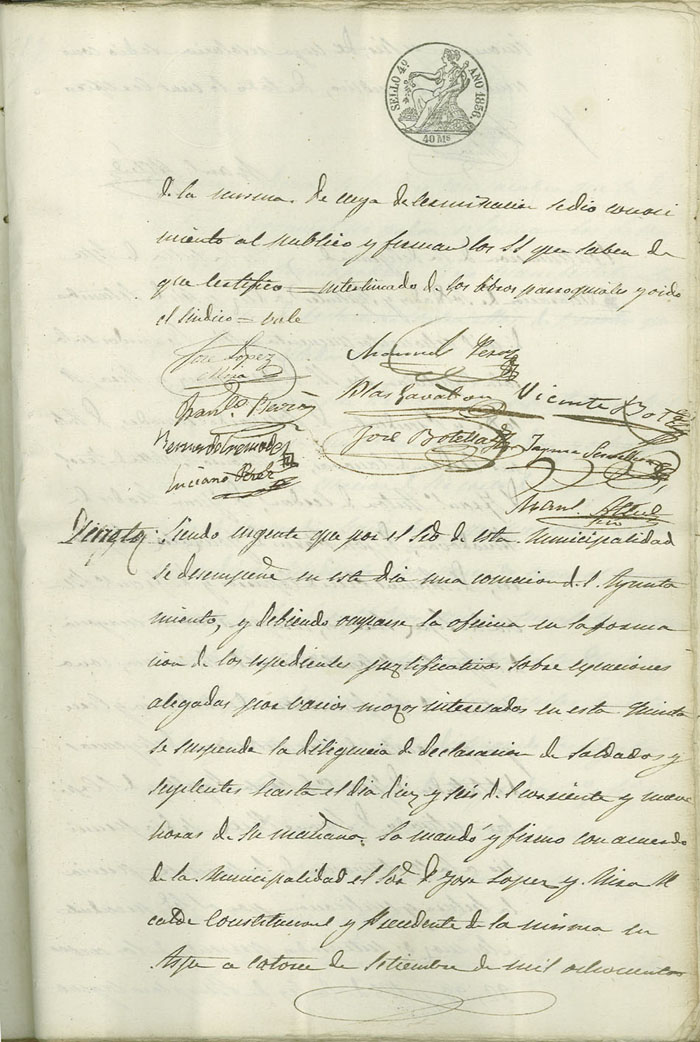 SELLO 4º AÑO 1856.
40 Ms
de la misma. De cuya determinacion se dio conoci
miento al publico y firman los SS que saben de
que certifico = interlineado de los libros parroquiales y oido
el sindico = vale
Jose Lopez Manuel Perez
Mira
Blas Gavaldon Vicente Botella
Jose Botella Jayme
Luciano Perez
Man.l
Siendo urgente que por el Srio de esta Municipalidad
se desempeñe en este dia una comicion del Ayunta
miento, y debiendo ocuparse la oficina en la forma
cion de los espedientes justificativos sobre esenciones
alegadas por varios mozos interesados en esta Quinta
se suspende la diligencia de declaracion de soldados y
suplentes hasta el dia diez y seis del corriente y nueve
horas de su mañana. Lo mandó y firmo con acuerdo
de la Municipalidad el Sor D. Jose Lopez y Mira Al
calde Constitucional y Precidente de la misma en
Aspe a catorce de Setiembre de mil ochocientos